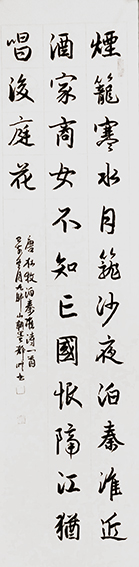 煙籠寒水月籠沙夜泊秦淮近
酒家商女不知亡國恨隔江猶
唱後庭花
唐杜牧泊秦淮詩一首